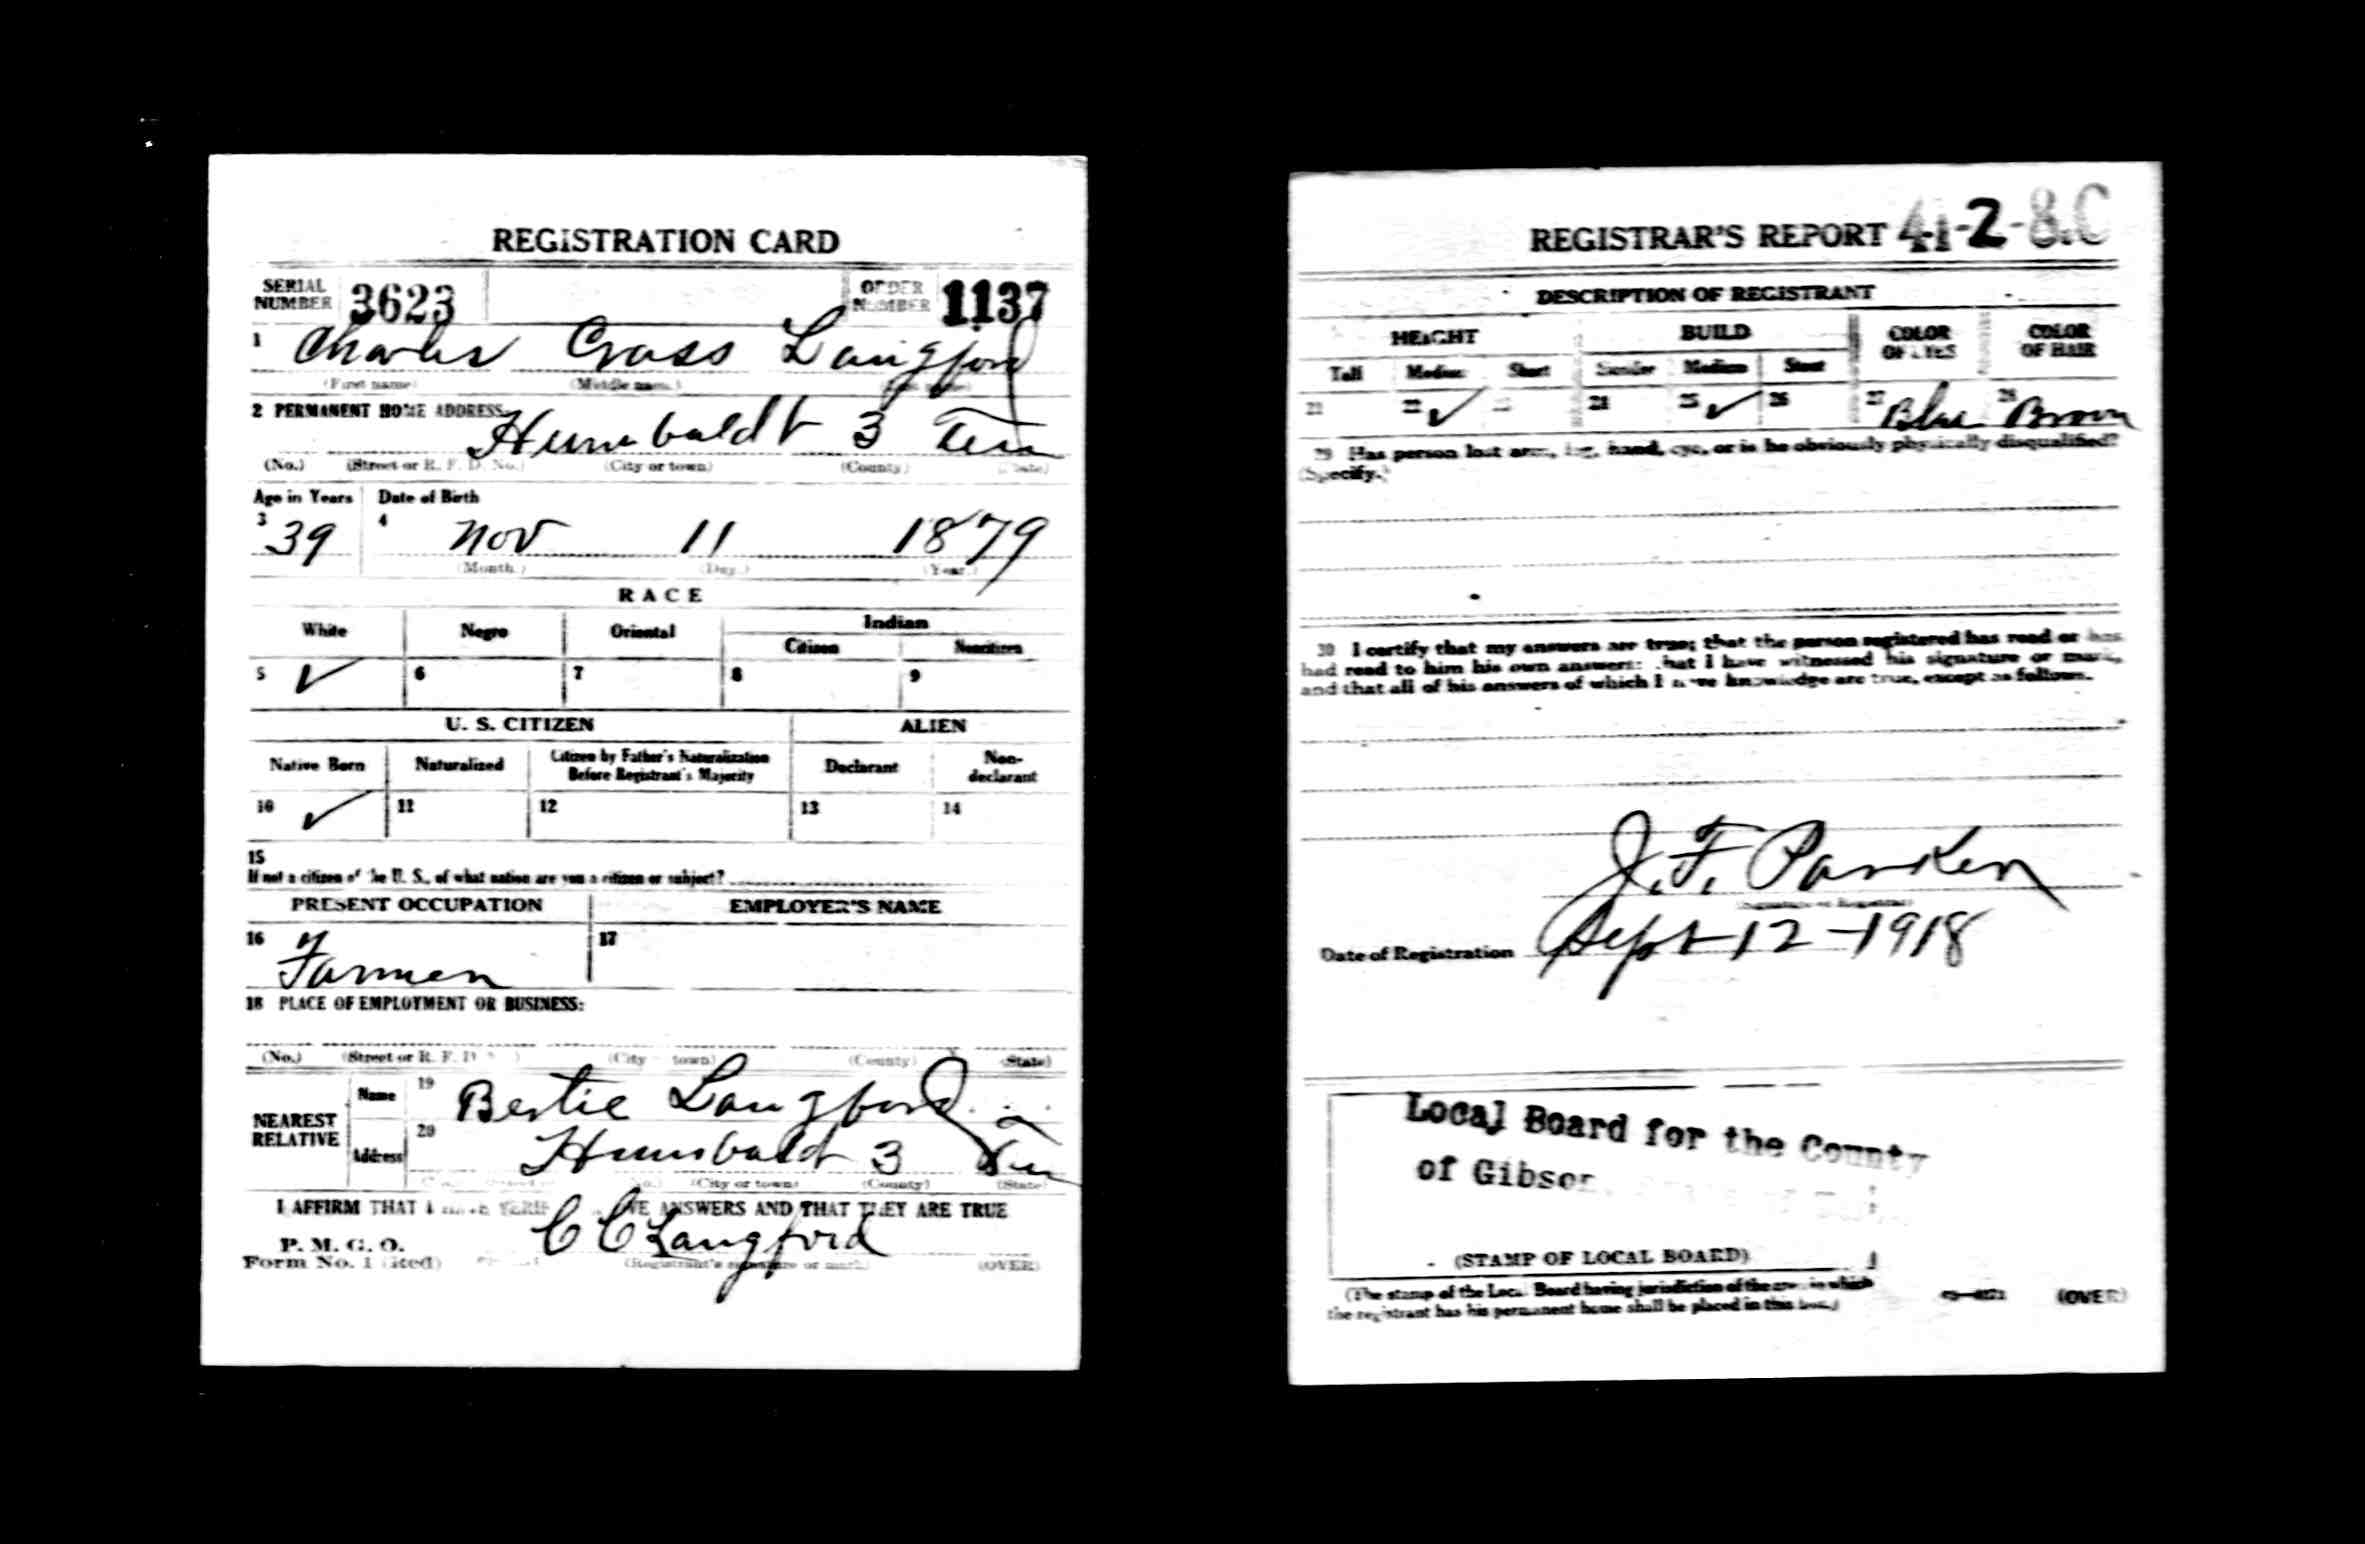 REGISTRATION CARD
SERIAL NUMBER 3623 ORDER NUMBER 1137
1 Charles Cross Langford
(First name) (Middle name)
2 PERMANENT HOME ADDRESS
Humboldt 3 Ten
(No.) (Street or R. F. D. No.) (City or town) (County) (State)
Age in Years Date of Birth
3 39 4 Nov 11 1879
(Month.) (Day.) (Year.)
RACE
White Negro Oriental Indian
Citizen Noncitizen
5 ✓ 6 7 8 9
U. S. CITIZEN ALIEN
Native Born Naturalized Citizen by Father's Naturalization Before Registrant's Majority Declarant Non-declarant
10 ✓ 11 12 13 14
15
If not a citizen of the U. S., of what nation are you a citizen or subject?
PRESENT OCCUPATION EMPLOYER'S NAME
16 Farmer 17
18 PLACE OF EMPLOYMENT OR BUSINESS:
(No.) (Street or R. F. D. ) (City town) (County) (State)
NEAREST RELATIVE Name 19 Bertie Langford
Address 20 Humboldt 3 Ten
(City or town) (County) (State)
I AFFIRM THAT I ANSWERS AND THAT THEY ARE TRUE
P. M. G. O.
Form No. 1 C C Langford
(Registrant's signature or mark) (OVER)
REGISTRAR'S REPORT 41-2-8.C
DESCRIPTION OF REGISTRANT
HEIGHT BUILD COLOR OF EYES COLOR OF HAIR
Tall Medium Short Slender Medium Stout
21 22 ✓ 24 25 ✓ 26 27 Blue 28 Brown
29 Has person lost arm, leg, hand, eye, or is he obviously physically disqualified?
(Specify.)
30 I certify that my answers are true; that the person registered has read or has
had read to him his own answers; that I have witnessed his signature or mark,
and that all of his answers of which I have knowledge are true, except as follows.
J. F. Parker
(Signature of Registrar)
Date of Registration Sept 12 - 1918
Local Board for the County
of Gibson
(STAMP OF LOCAL BOARD)
(The stamp of the Local Board having jurisdiction of the area in which
the registrant has his permanent home shall be placed in this box.)
(OVER)